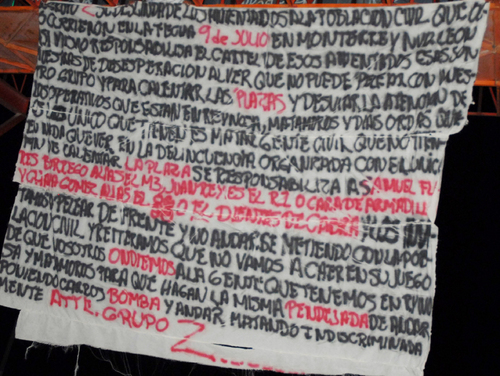 DE LOS ATENTADOS A LA POBLACION CIVIL QUE O
CURRIERON EN LA FECHA 9 de JULIO EN MONTERREY NUEVO LEON
SI MISMO RESPONSABILIZA EL CARTEL DE ESOS ATENTADOS ESAS SON
MUESTRAS DE DESESPERACION AL VER QUE NO PUEDE PELEAR CON NUES
TRO GRUPO Y PARA CALENTAR LAS PLAZAS Y DESVIAR LA ATENCION DE
OPERATIVOS QUE ESTAN EN REYNOSA, MATAMOROS Y DIAS ORDAS QUE
UNICO QUE TIENEN ES MATAR GENTE CIVIL QUE NO TIEN
EN NADA QUE VER EN LA DELINCUENCIA ORGANIZADA CON EL UNICO
CALENTAR LA PLAZA SE RESPONSABILIZA A SAMUEL FL
RES BORREGO ALIAS EL M3, JUAN REY ES EL R1 O CARA DE ARMADILL
Y GOMES ALIAS EL O EL
PELEAR DE FRENTE Y NO ANDAR SE METIENDO CON LA POB
LACION CIVIL Y REITERAMOS QUE NO VAMOS A CAER EN SU JUEGO
DE QUE VOSOTROS ONDIEMOS A LA GENTE QUE TENEMOS EN
SA Y MATAMOROS PARA QUE HAGAN LA MISMA PENDEJADA DE ANDAR
PONIENDO CARROS BOMBA Y ANDAR MATANDO INDISCRIMINADA
MENTE ATTE. GRUPO Z